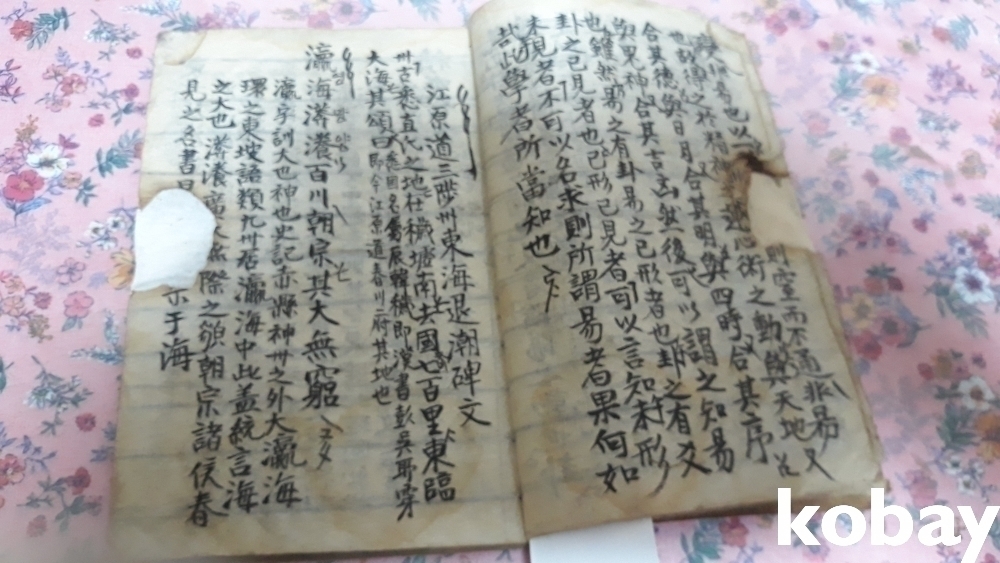 非易也以 則窒而不通非易又
也故得之於精神 運心術之動與天地
合其德與日月合其明與四時合其序
與鬼神合其吉凶然後可以謂之知易
也雖然易之有卦易之已形者也卦之有爻
卦之已見者也已形已見者可以言知未形
未見者不可以名求則所謂易者果何如
哉此學者所當知也
江原道三陟州東海退潮碑文
州古悉直氏之地在穢墟南去國七百里東臨
大海其頌曰
穢國名 展韓穢即漢書彭吳所穿
即今江原道春川府其地也
瀛海漭瀁百川朝宗其大無窮
瀛字訓大也神也史記赤縣神州之外大瀛海
環之東坡語類九州居瀛海中此盖統言海
之大也漭瀁 無際之貌朝宗諸侯春
見之名書曰 宗于海
kobay